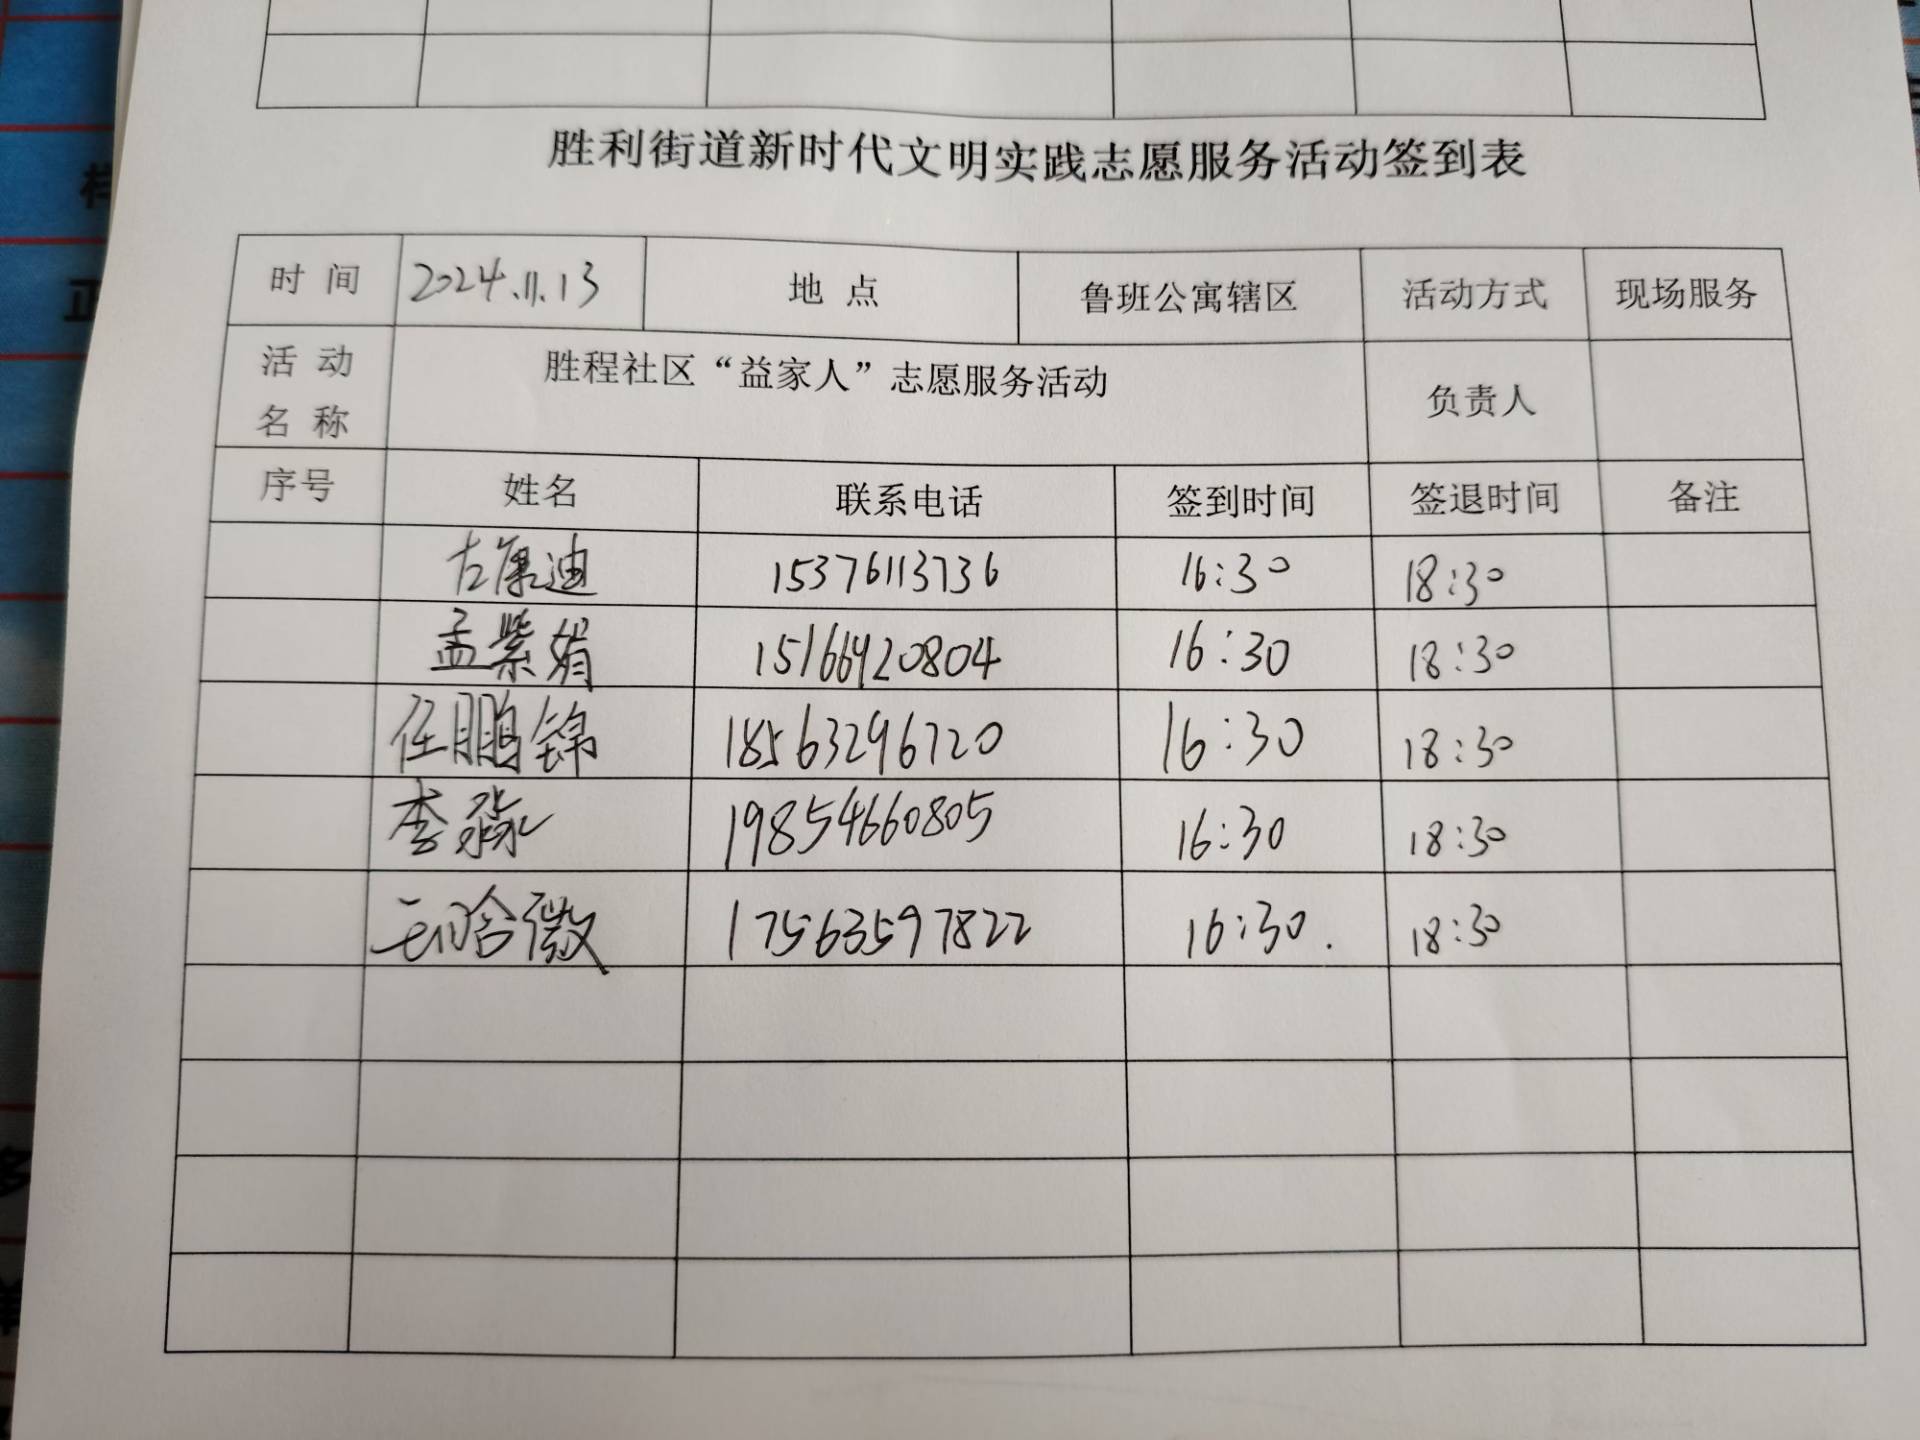 胜利街道新时代文明实践志愿服务活动签到表
时 间 2024.11.13 地 点 鲁班公寓辖区 活动方式 现场服务
活 动
名 称 胜程社区“益家人”志愿服务活动 负责人
序号 姓名 联系电话 签到时间 签退时间 备注
左康迪 15376113736 16:30 18:30
孟紫娟 15166420804 16:30 18:30
任鹏锦 18563296720 16:30 18:30
李淼 19854660805 16:30 18:30
17563597822 16:30. 18:30